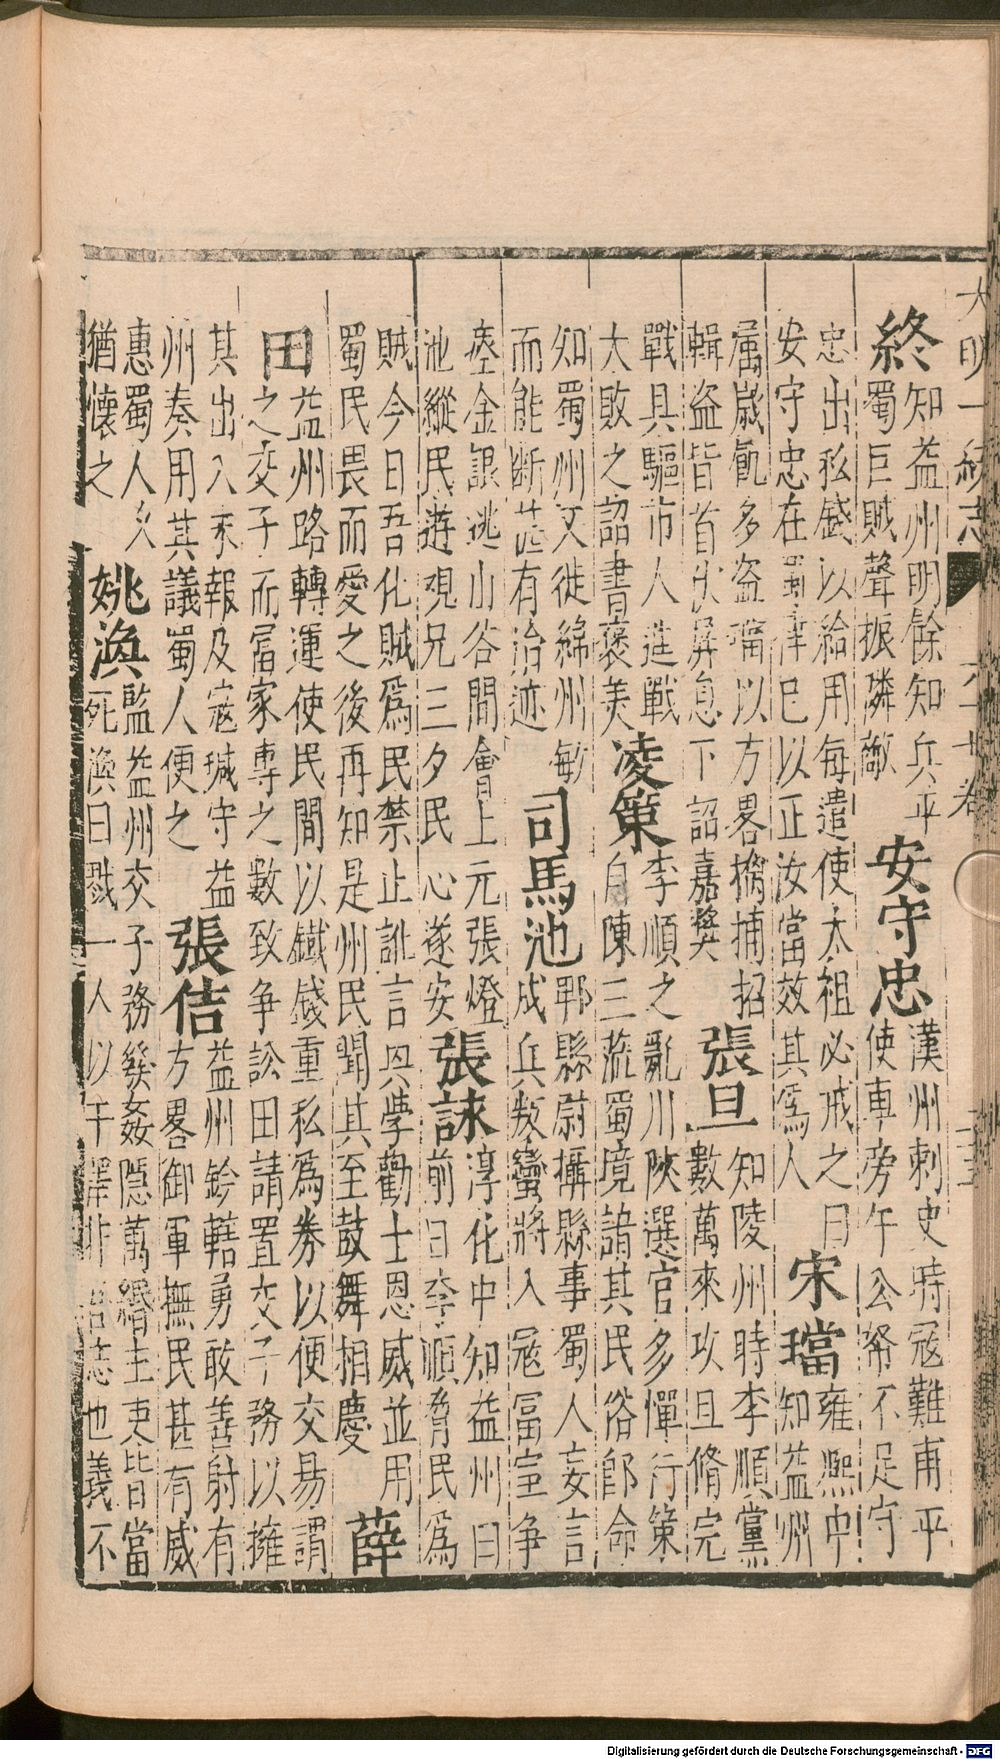 大明一統志 六十七卷
終 知益州明餘知兵平
蜀巨賊聲振隣敵
安守忠 漢州刺史時冦難甫平
使車旁午公帑不足守
忠出私錢以給用每遣使太祖必戒之曰
安守忠在蜀能律已以正汝當效其爲人
宋璫 雍熙中
知益州
属歲飢多盗璫以方畧擒捕招
輯盗皆首伏屏息下詔嘉奬
張旦 知陵州時李順黨
數萬來攻旦脩完
戰具驅市人進戰
大敗之詔書褒美
凌策 李順之亂川陜選官多憚行策
自陳三蒞蜀境諳其民俗卽命
知蜀州又徙綿州敏
而能断甚有治迹
司馬池 郫縣尉攝縣事蜀人妄言
戍兵叛蠻將入冦冨室争
瘞金銀逃山谷間會上元張燈
池縱民遊覌凡三夕民心遂安
張詠 淳化中知益州曰
前日李順脅民爲
賊今日吾化賊爲民禁止訛言興學勸士恩威並用
蜀民畏而愛之後再知是州民聞其至鼓舞相慶
薛
田 益州路轉運使民間以鐵錢重私爲券以便交易謂
之交子而冨家專之數致争訟田請置交子務以擁
其出入不報及冦瑊守益
州奏用其議蜀人便之
張佶 益州鈐轄勇敢善射有
方畧御軍撫民甚有威
惠蜀人久
猶懷之
姚渙 監益州交子務發姦隱萬緡主吏皆當
死渙曰戮一人以干澤非吾志也義不
Digitalisierung gefördert durch die Deutsche Forschungsgemeinschaft - DFG